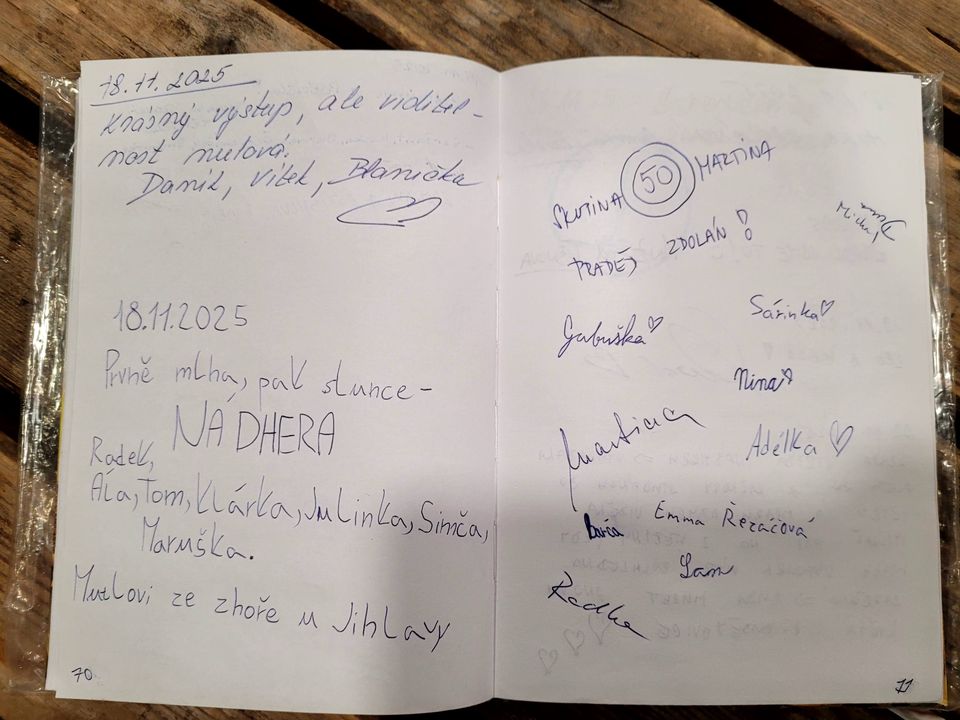 18.11.2025
Krásný výstup, ale viditel-
nost nulová.
Daník, Vítek, Blanička
18.11.2025
Prvně mlha, pak slunce -
NÁDHERA
Radek,
Ála, Tom, Klárka, Julinka, Simča,
Maruška.
ze Zhoře u Jihlavy
70
50
ŠKUTINA MARTINA
PRADĚD ZDOLÁN!
Michal
Dana
Sárinka
Gabuška
Nina
Martina
Adélka
Barča
Emma Řezáčová
Sam
Radka
71